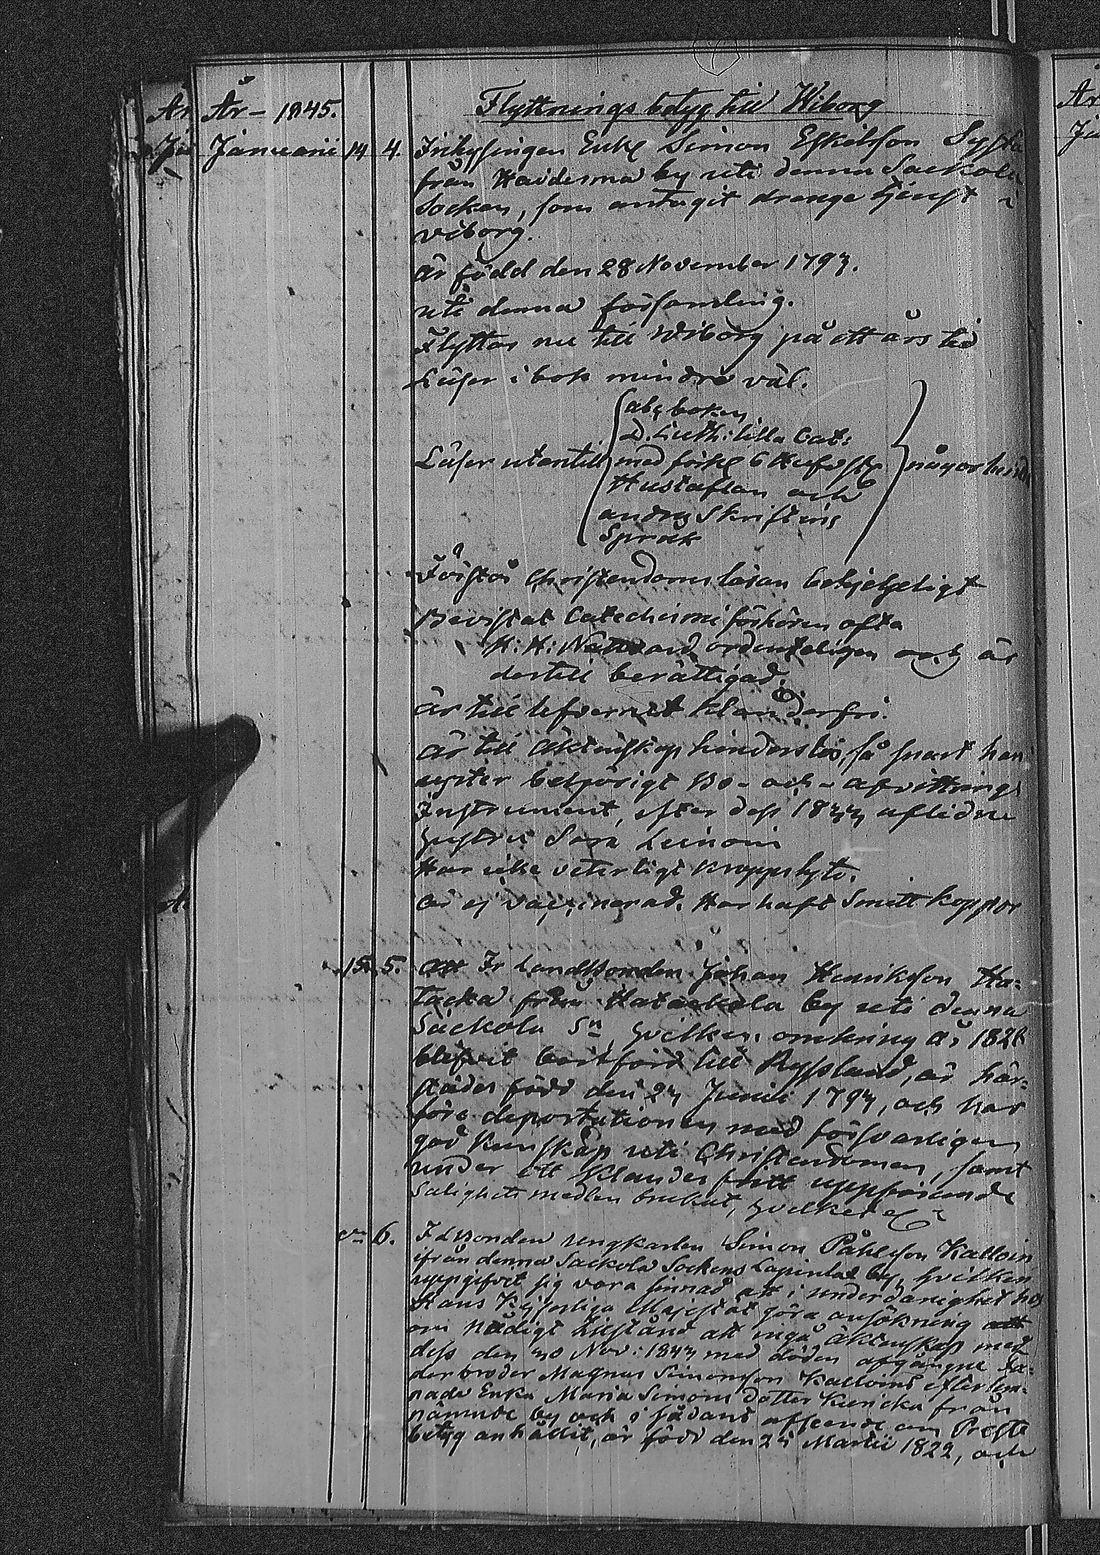 År - 1845. Flyttnings betyg till Wiborg
Januarii 14 4. Inhysingen Enkl Simon Eskelson
från by uti denna Sackola
Socken, som antagit drenge tjenst i
Viborg.
är född den 28 November 1793.
uti denna församling.
Flyttar nu till Wiborg på ett års tid
Läser i bok mindre väl.
abc boken
D. Luth: lilla Cat:
Läser utantill med förkl
Hustaflan och
andra Skriftens
Språk
Förstår Christendoms läran behjelpeligt
Bevistat Catechismi förhören ofta
H: H: Nattvard ordenteligen och är
dertill berättigad.
är till lefvernet klanderfri.
är till Äktenskap hinderslös, så snart han
behörigt Bo- och afvittrings
Instrument, efter dess 1844 aflidne
hustru Sara Leinoin
Har icke veterligt kroppslyte.
är ej vaccinerad. Har haft Smittkoppor
15. 5. Fr Landbonden Johan Henrikson
från by uti denna
Sackola Sn hvilken omkring år 1826
blifvit bortförd till Ryssland, är här-
städes född den 24 Junii 1794, och har
före deportationen med försvarligen
god kunskap uti Christendomen, samt
under ett klander fritt uppförande
Salighets medlen brukat, hvilket
6. Simon Påhlsson Kalloin
ifrån denna Sackola Sockens Lapinlax by, hvilken
uppgifvit sig vara sinnad att i underdånighet hos
Hans Kejserliga Majestät göra ansökning
om nådigt tillstånd att ingå äktenskap med
dess den 30 Nov: 1844 med döden afgångne Fa-
derbroder Magnus Simonson Kalloins efterlem-
nade Enka Maria Simons dotter från
nämnde by och i sådant afseende om Preste
betyg anhållit, är född den 24 Martii 1822, och